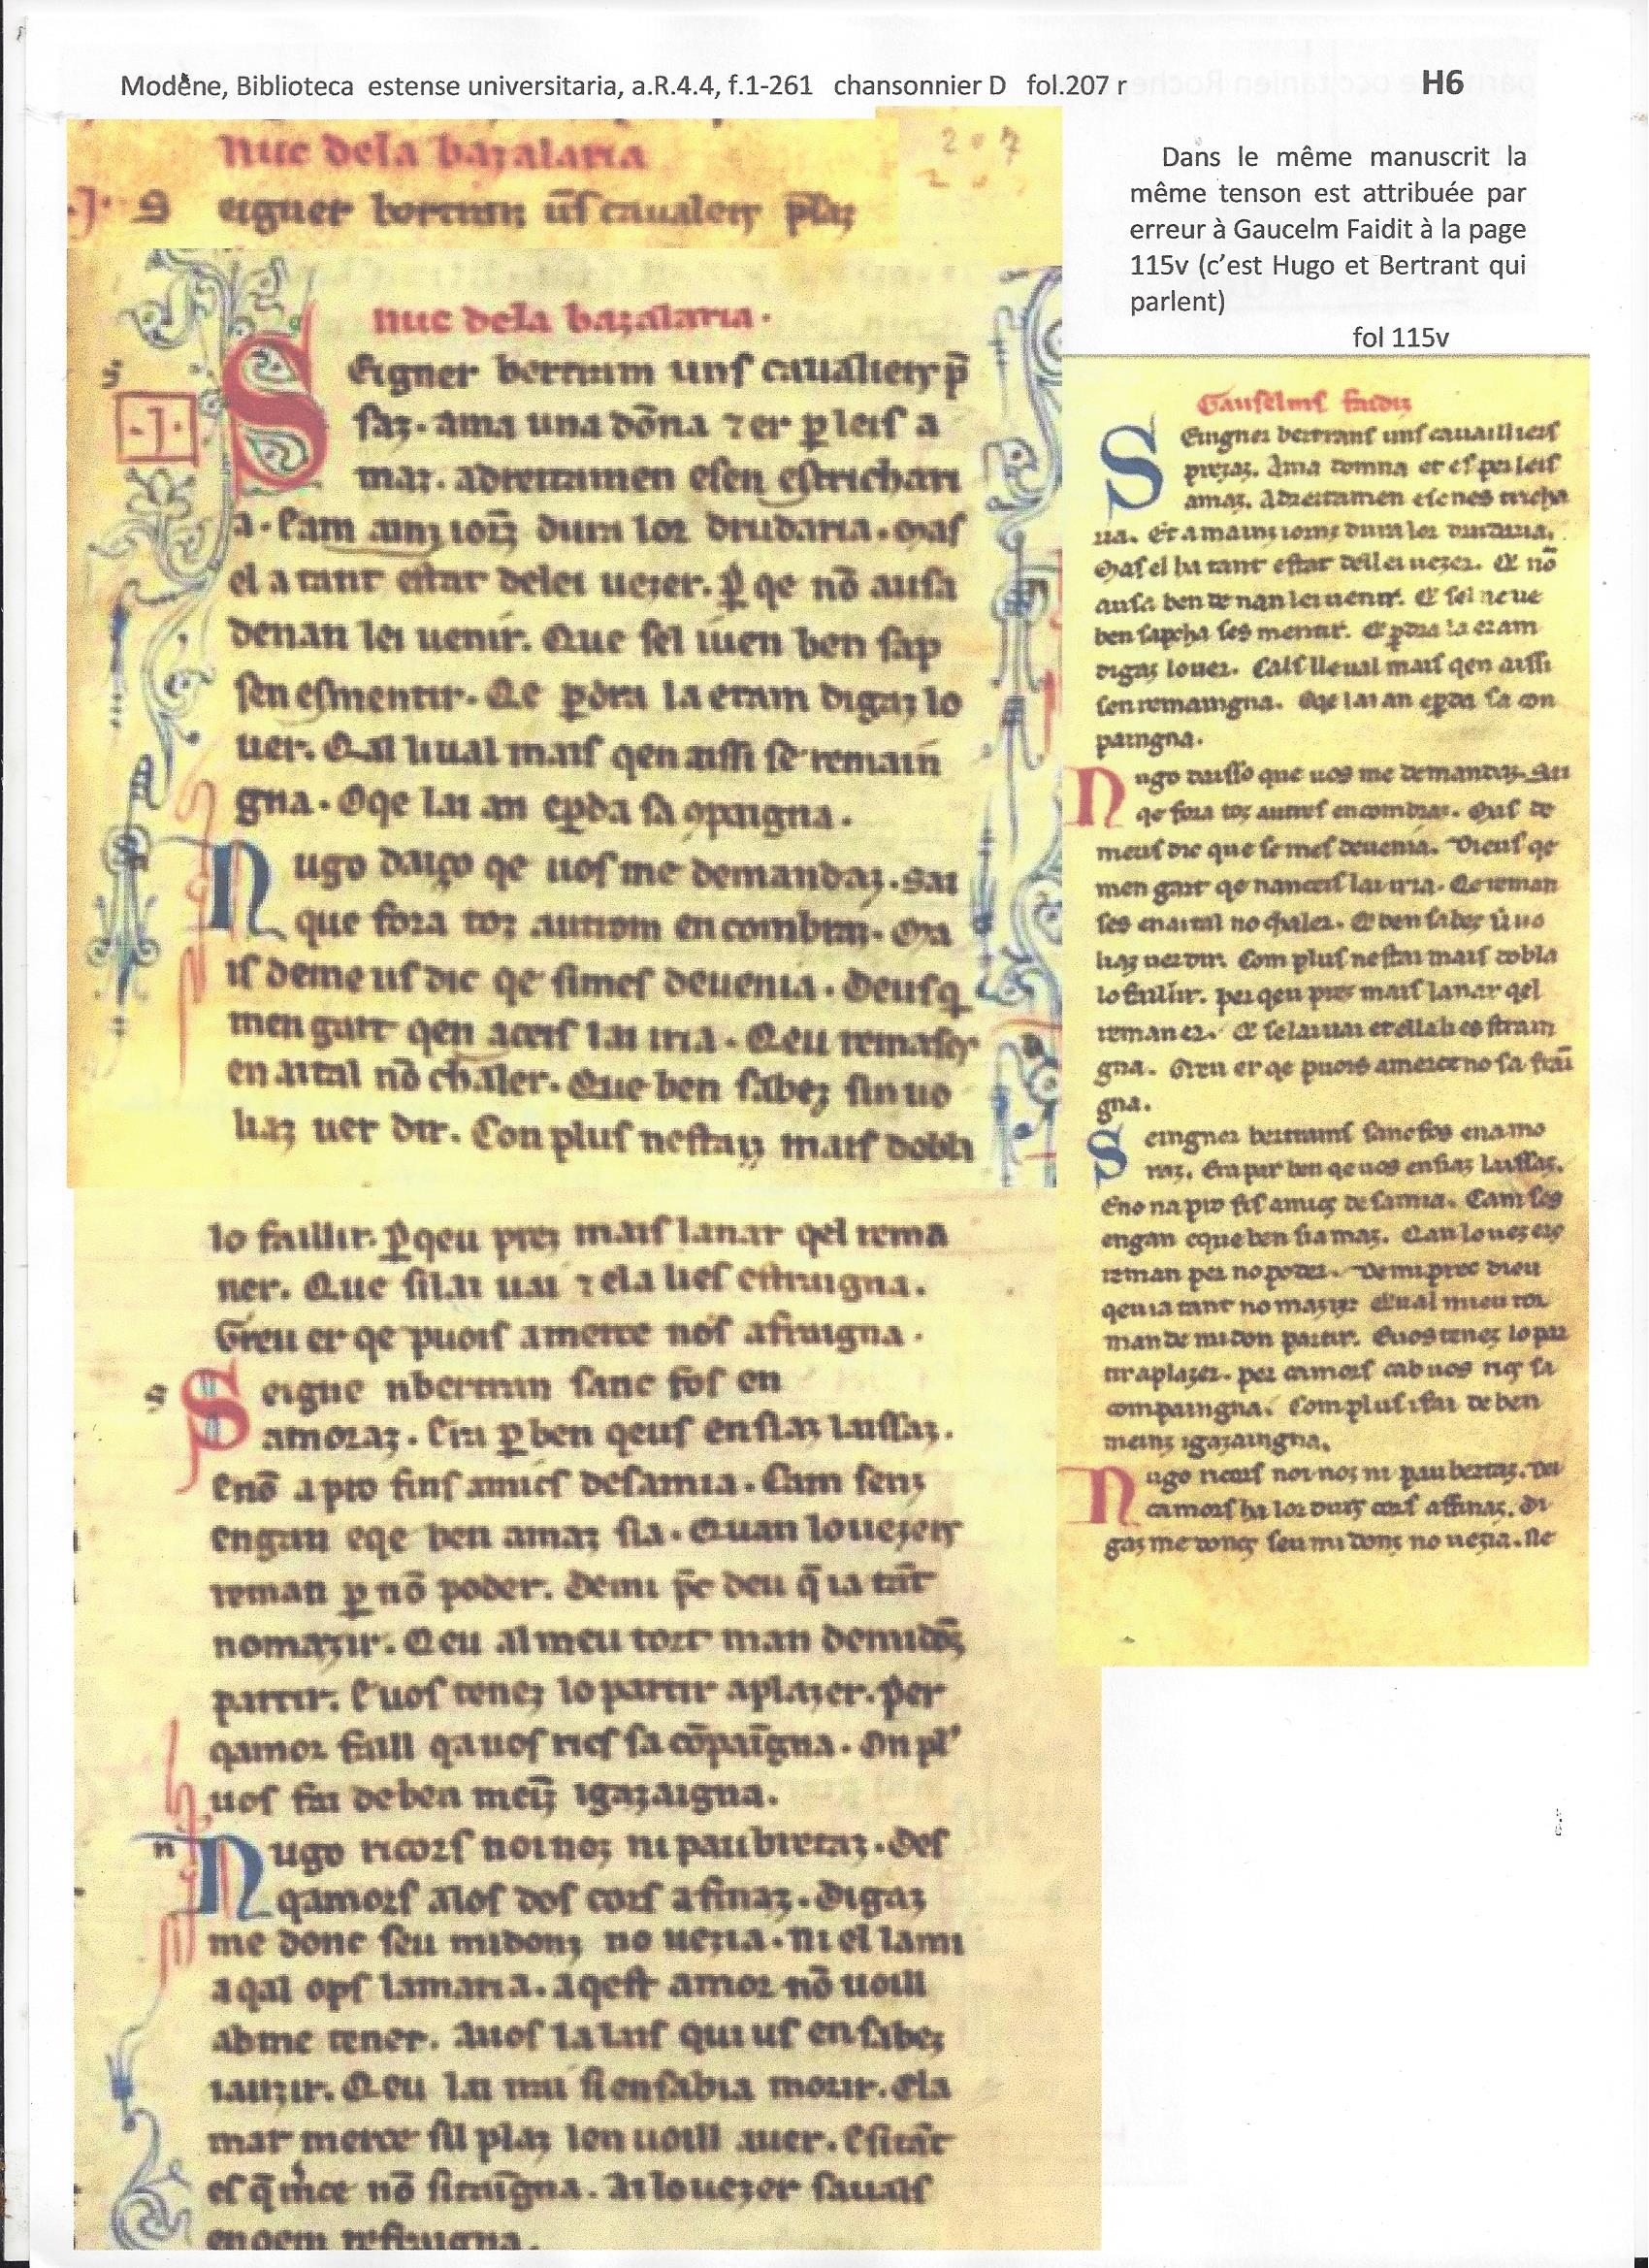 Modène, Biblioteca estense universitaria, a.R.4.4, f.1-261 chansonnier D fol.207 r H6
nuc dela bazalaria
207
.J. S eigner bertran uns caualiers p̄saz
nuc dela bazalaria.
.J. Seigner bertram unſ caualiers p̄
ſaz. ama una dōna ⁊ er p̱ leiſ a
maz. adreitamen eſen eſtrichari
a. Eam ainz iorz dura lor drudaria. Maſ
el a tant eſtat delei uezer. p̱ qe nō auſa
denan lei uenir. Que ſel iuen ben ſap
ſen eſmentir. Qe p̱dra la eram digaz lo
uer. Qal liual maiſ qen aiſſi ſe remain
gna. Oqe lai an ep̱da ſa ꝯpaigna.
Nugo daiço qe uoſ me demandaz. Sai
que fora toz autrom encombraz. Ma
iſ demeuſ dic qe ſimeſ deuenia. Deuſ q̱
men gart qen aceiſ lai iria. Qeu remaſes
en aital nō chaler. Que ben ſabez ſin uo
liaz uer dir. Con pluſ neſtaz maiſ dobli
lo faillir. p̱qeu prez maiſ lanar qel rema
ner. Que ſilai uai ⁊ ela lieſ eſtraigna.
Greu er qe puoiſ amerce noſ afraigna.
Seigne nbertran ſanc foſ en
amoraz. Era p̱ ben qeuſ enſiaz laiſſaz.
Enō a pro finſ amicſ deſamia. Cam ſenz
engan eqe ben amaz ſia. Quan louezers
reman p̱ nō poder. Demi p̄c deu q̄ ia tāt
nomazir. Qeu al meu tort man demidōz
partir. Euoſ tenez lo partir aplazer. Per
qamor faill qauoſ ricſ ſa cōpaīgna. On pl'
uoſ fai deben meīz igazaigna.
Nugo ricorſ noi noz ni paubretaz. Deſ
qamorſ aloſ doſ corſ afinaz. Digaz
me donc ſeu midonz no uezia. Ni el lami
a qal opſ lamaria. aqeſt amor nō uoill
abme tener. Auoſ la laiſ qui uſ en ſabez
iauzir. Qeu lai irai ſienſabia morir. Cla
mar merce ſil plaz len uoill auer. Eſitāt
eſ q̄ mce nō ſitaīgna. Al louezer ſaualſ
enqem refraigna.
Dans le même manuscrit la
même tenson est attribuée par
erreur à Gaucelm Faidit à la page
115v (c'est Hugo et Bertrant qui
parlent)
fol 115v
Gauſelmſ faidiz
Seingner bertranſ unſ cauailliers
prezaz. Ama domna et eſ per leiſ
amaz. Adreitamen eſenes tricha
ria. Et amainz iornz dura lor drudaria.
Maſ el ha tant eſtat dellei uezer. Qe nō
auſa ben denan lei uenir. Qe ſel ne ue
ben ſapcha ſes mentir. Qe p̱dra la eram
digaz louer. Calſ lleual maiſ qen aiſſi
ſen remaingna. Oqe lai an ep̱da ſa con
paingna.
Nugo daiſſo que uos me demandaz. Sai
qe fora toz autreſ encombraz. Maſ de
meuſ dic que ſe meſ deuenia. Dieuſ qe
men gart qe nanceiſ lai iria. Qe reman
ſes en aital no chaler. Qe ben ſabez ſi uo
liaz uer dir. Com pluſ neſtai maiſ dobla
lo faillir. per qeu prez maiſ lanar qel
remaner. Qe ſe lai uai et ellali es ſtrain
gna. Greu er qe puois amerce no ſa frai
gna.
Seingner bertranſ ſanc fos enamo
raz. Era par ben qe uos enſiaz laiſſaz.
Eno na pro fiſ amicz de ſamia. Cam ſes
engan eque ben ſia maz. Can louezers
reman per no poder. De mi prec dieu
qeu ia tant no mazir. Qual mieu tor
man de midon partir. Euos tenez lo par
tir aplazer. per camorſ cab uos ricz ſa
compaingna. Com pluſ iſai de ben
meinz igazaingna.
Nugo ricorſ noi noz ni paubertaz. De
camorſ ha lor dous corſ affinaz. Di
gaz me doncz ſeu mi donz no uezia. Ne